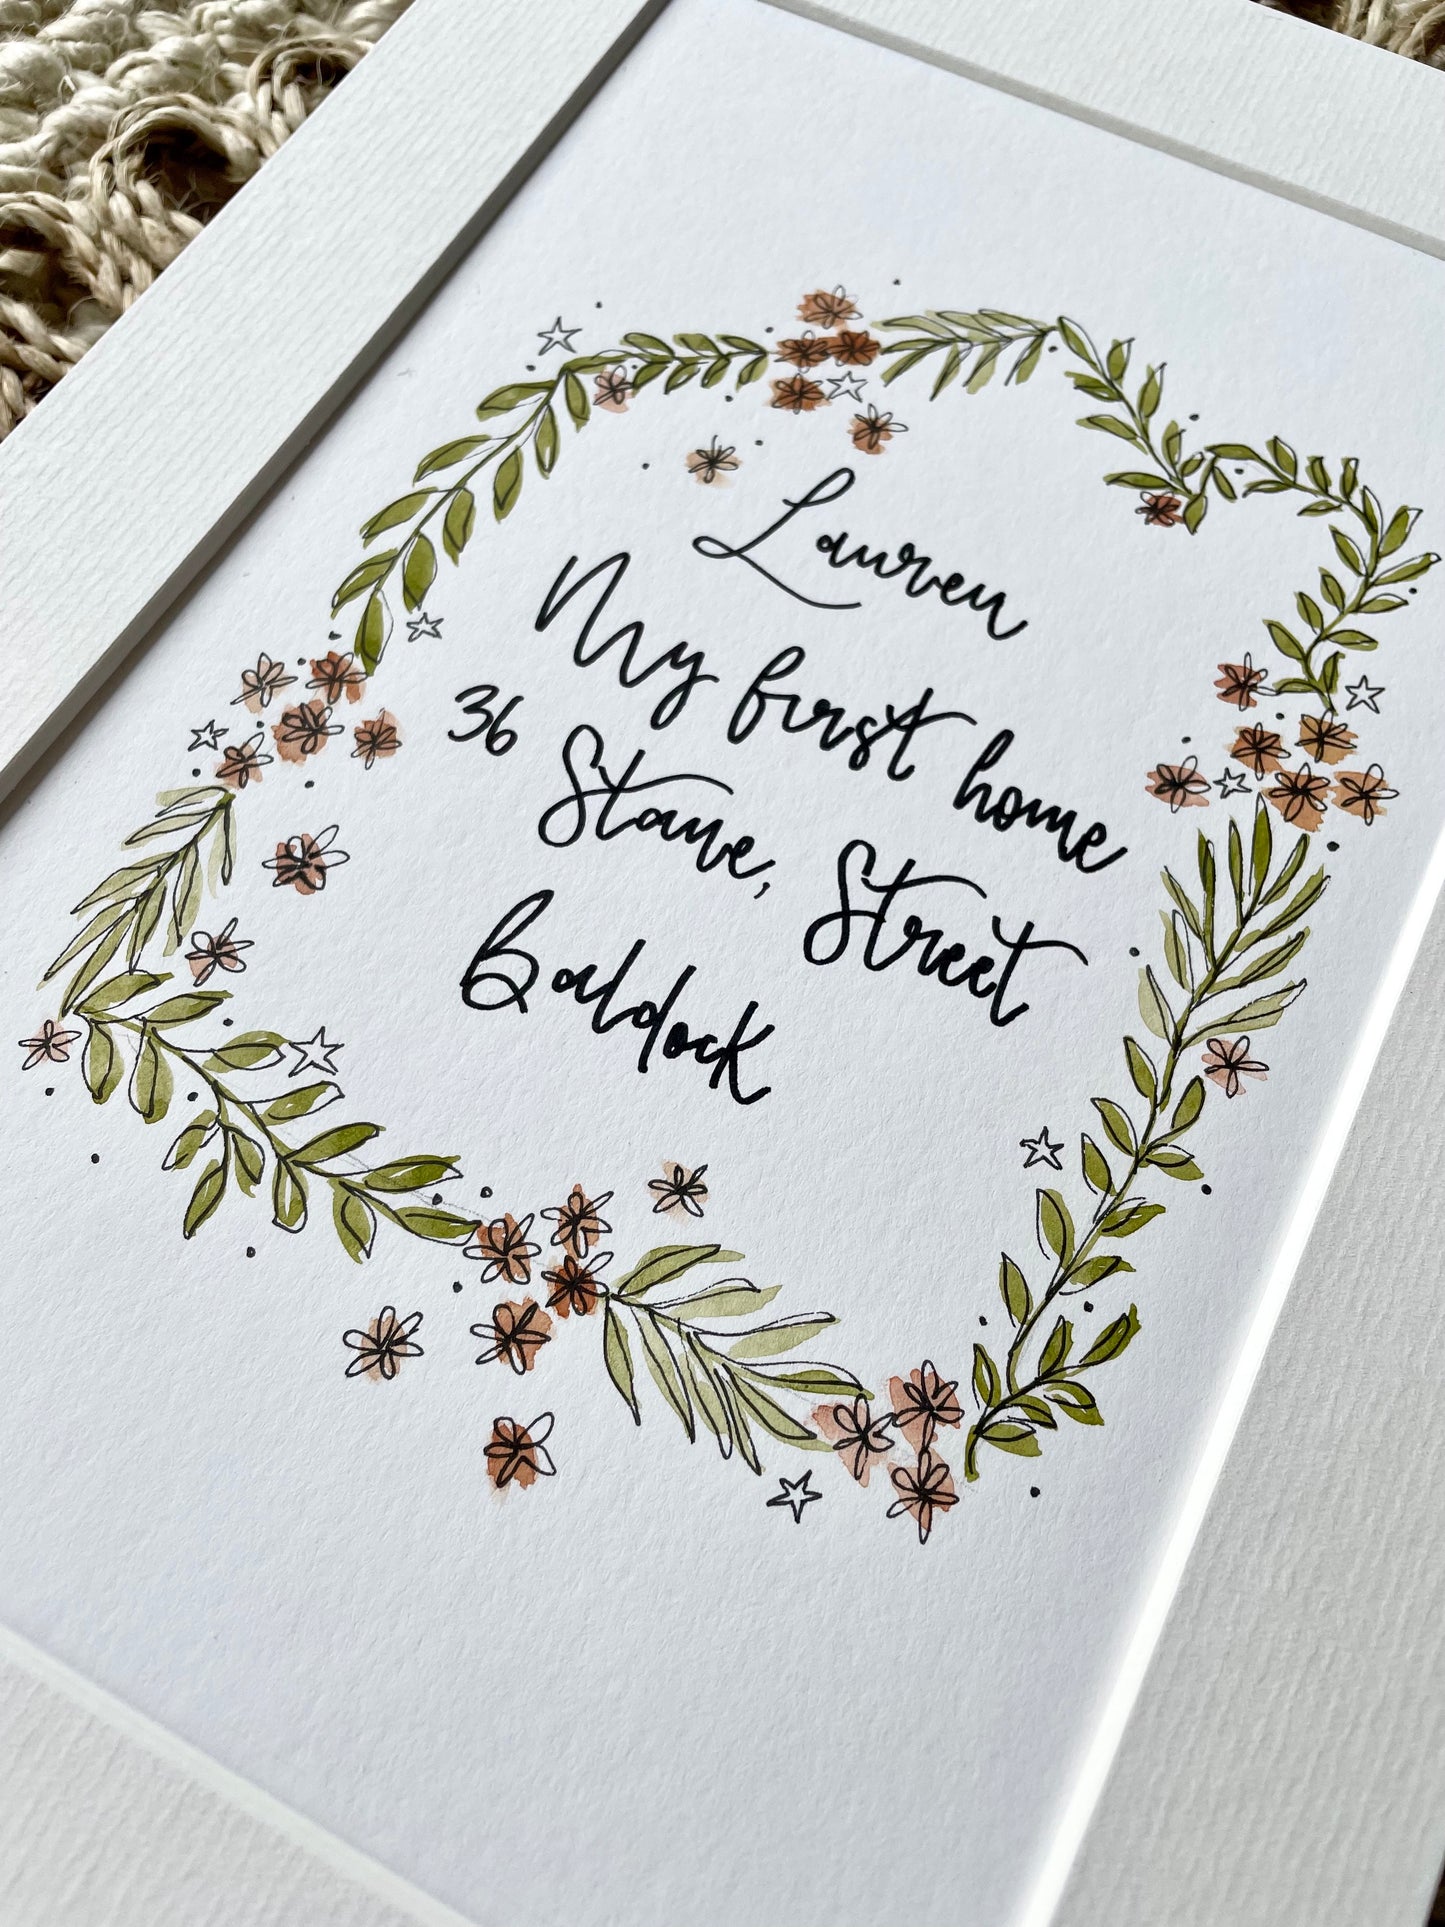 Lauren
My first home
36 Stane, Street
Baldock